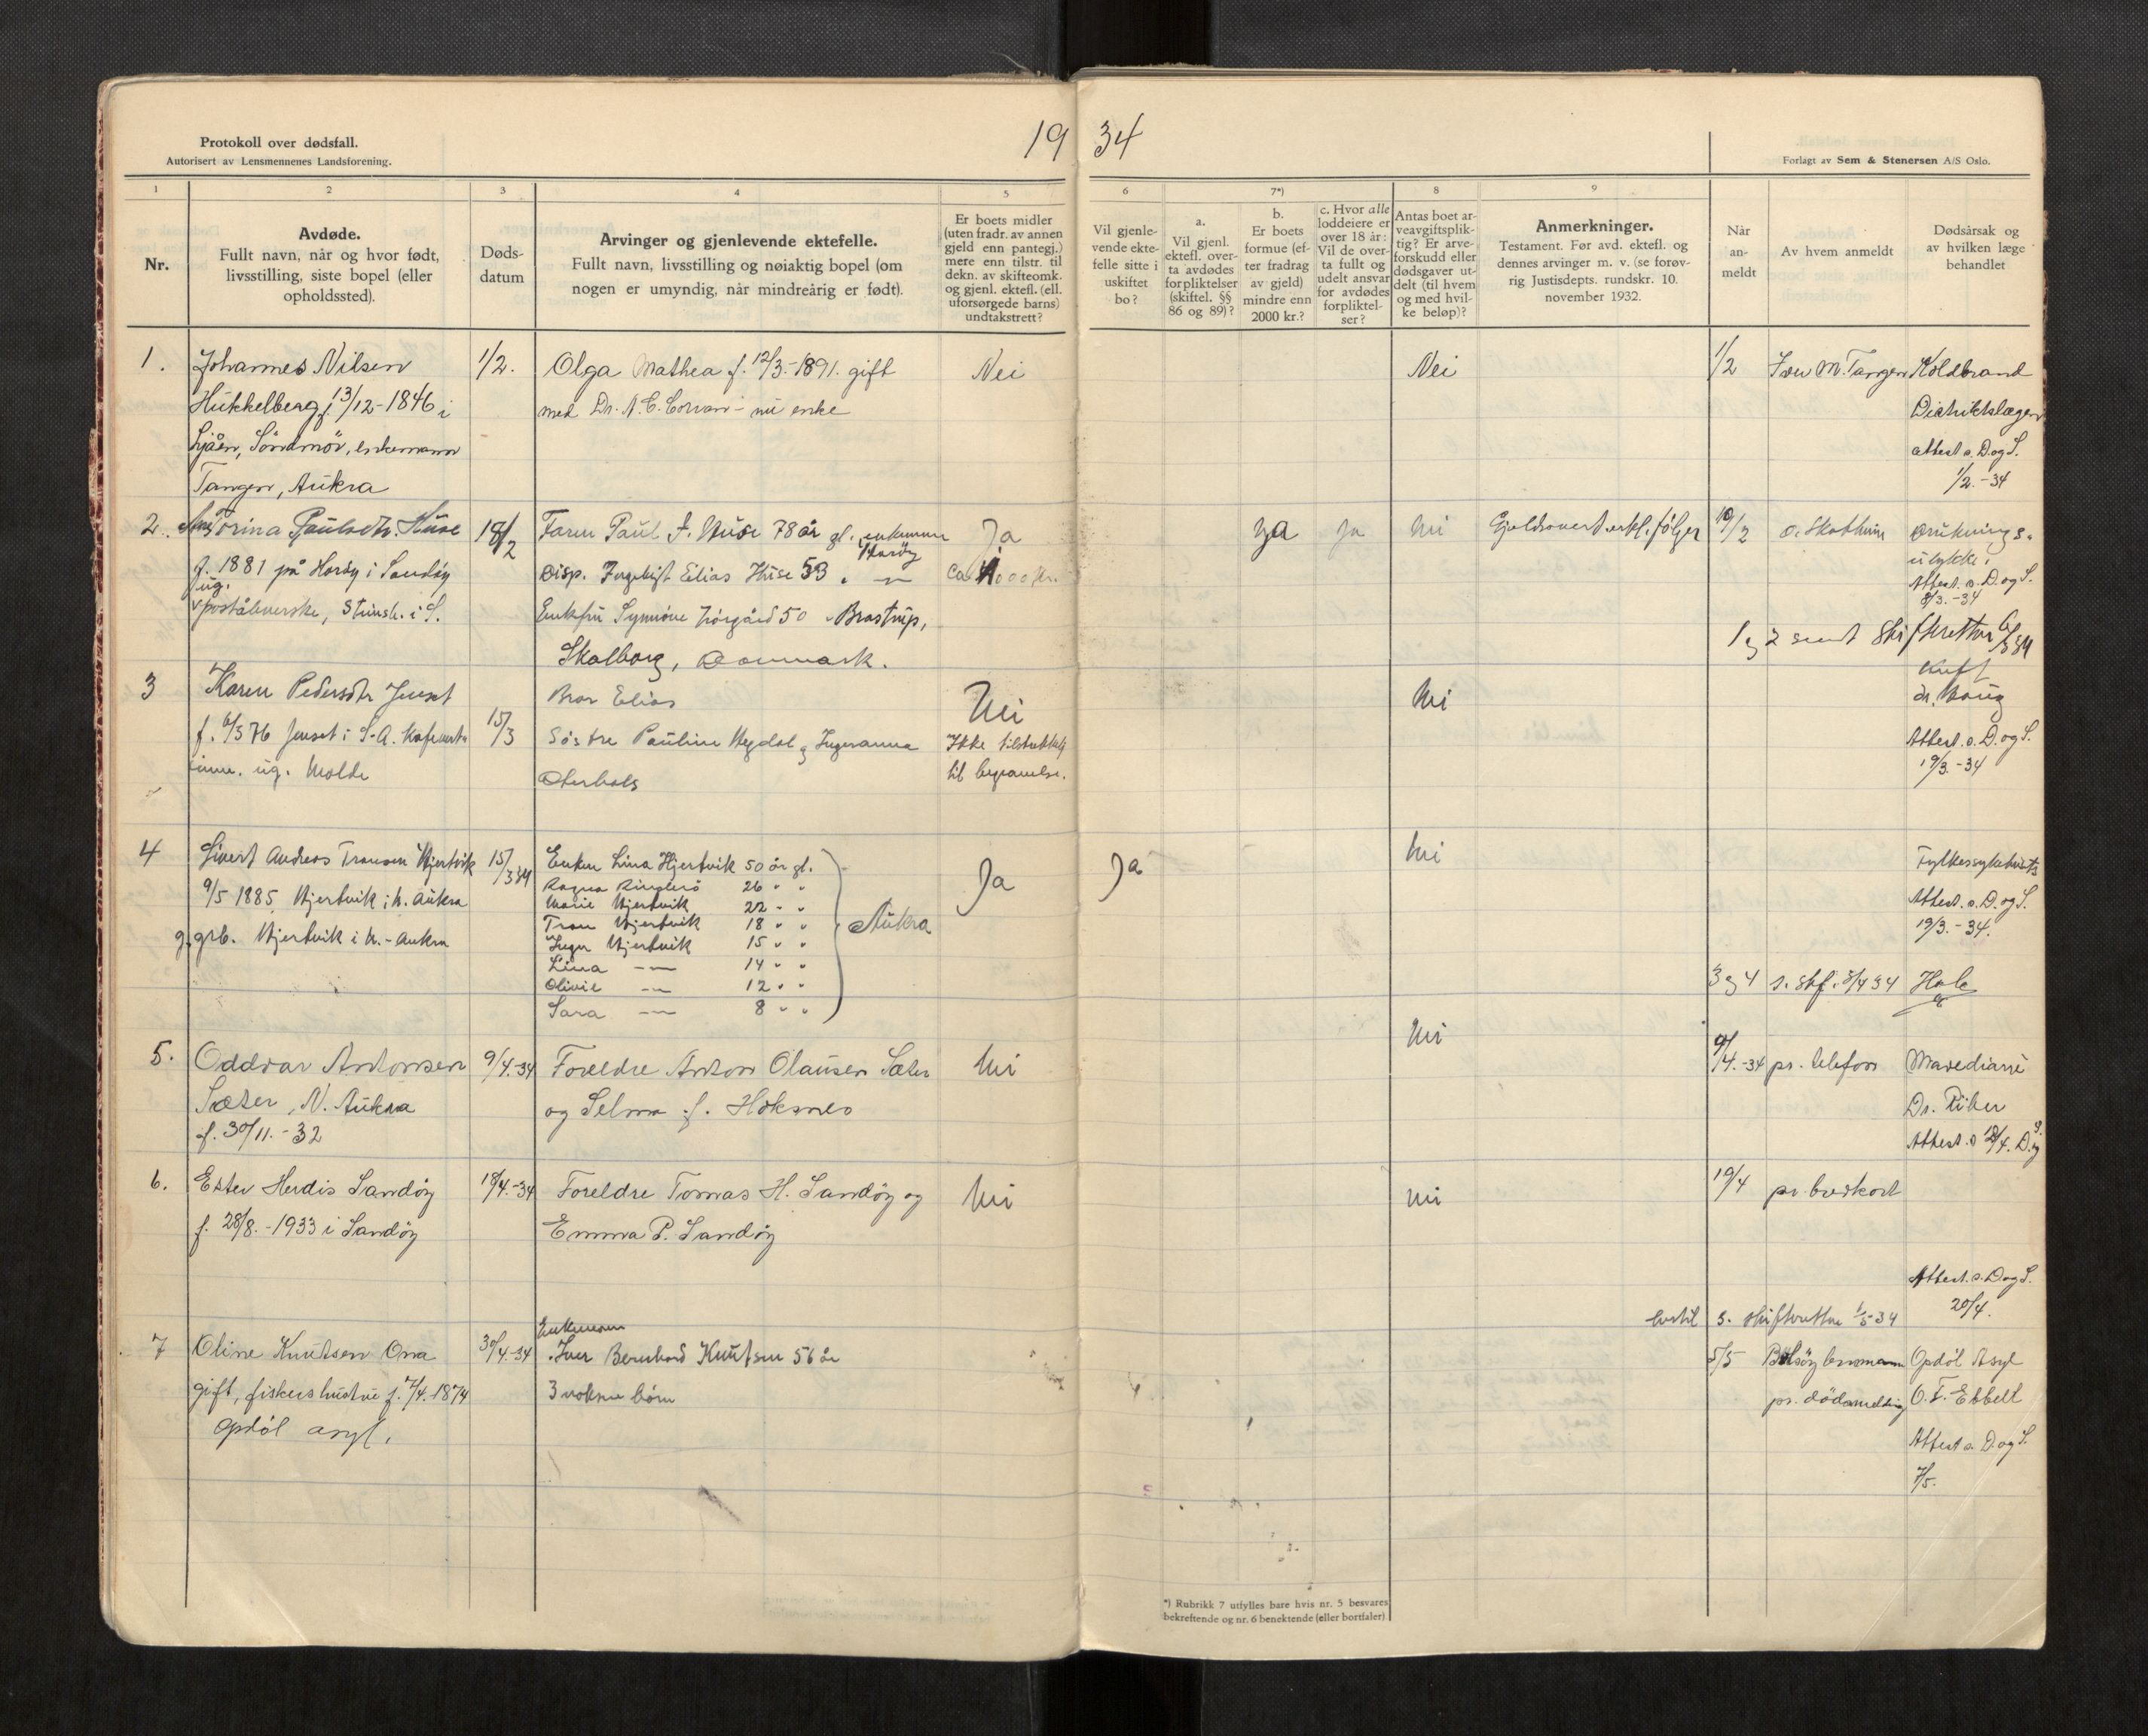 Protokoll over dødsfall.
Autorisert av Lensmennenes Landsforening.
19 34
Forlagt av Sem & Stenersen A/S Oslo.
1 2 3 4 5 6 7*) 8 9
Nr.
Avdøde.
Fullt navn, når og hvor født,
livsstilling, siste bopel (eller
opholdssted).
Døds-
datum
Arvinger og gjenlevende ektefelle.
Fullt navn, livsstilling og nøiaktig bopel (om
nogen er umyndig, når mindreårig er født).
Er boets midler
(uten fradr. av annen
gjeld enn pantegj.)
mere enn tilstr. til
dekn. av skifteomk.
og gjenl. ektefl. (ell.
uforsørgede barns)
undtakstrett?
Vil gjenle-
vende ekte-
felle sitte i
uskiftet
bo?
a.
Vil gjenl.
ektefl. over-
ta avdødes
forpliktelser
(skiftel. §§
86 og 89)?
b.
Er boets
formue (ef-
ter fradrag
av gjeld)
mindre enn
2000 kr.?
c. Hvor alle
loddeiere er
over 18 år:
Vil de over-
ta fullt og
udelt ansvar
for avdødes
forpliktel-
ser?
Antas boet ar-
veavgiftsplik-
tig? Er arve-
forskudd eller
dødsgaver ut-
delt (til hvem
og med hvil-
ke beløp)?
Anmerkninger.
Testament. Før avd. ektefl. og
dennes arvinger m. v. (se forøv-
rig Justisdepts. rundskr. 10.
november 1932.
Når
an-
meldt
Av hvem anmeldt
Dødsårsak og
av hvilken læge
behandlet
1. Johannes Nilsen 1/2. Olga Mathea f. 12/3.-1891. gift Nei Nei 1/2 Iver M. Tangen Koldbrand
Hukkelberg f 13/12-1846 i med Dr. N. C. nu enke Distriktslægen
Søndmør, enkemann attest s. D. og S.
Tangen, Aukra 1/2.-34
2. Torina Paulsdtr. Huse Faren Paul Huse 78 år gl. enkemann Ja ja ja nei følger O. Skotheim Druknings-
f. 1881 på Harøy i Sandøy Harøy
ug. Disp. Elias Huse 53 " — ca 000 kr. ulykke.
Attest. s. D. og S.
poståbnerske, i S. Enkefru Synnøve 50 Brostrup, 8/3.-34
Skalborg, Danmark. 1 og 2 sendt Skifteretten
3 Karen Pedersdtr Jenset 15/3 Bror Elias Nei Nei
dr.
f. 6/3 76 Jenset i S.A. Kafevert- Søstre Pauline Hegdal og Ingeranna Ikke tilstrekkelig Attest. s. D. og S.
inne. ug. Molde Oterhals til begravelse. 19/3.-34
4 Sivert Andreas Tronsen Hjertvik 15/3 34 Enken Lina Hjertvik 50 år gl. Ja Ja Nei Fylkessykehuset
9/5 1885 Hjertvik i N. Aukra Ragna 26 " "
Marie Hjertvik 22 " " Attest. s. D. og S.
g. grb. Hjertvik i N.-Aukra Tron Hjertvik 18 " " Aukra 19/3.-34.
Inger Hjertvik 15 " "
Lina — 14 " "
Olivie — 12 " " 3 og 4 s. skf. 5/4 34
Sara — 8 " "
5. Oddvar Antonsen 9/4.-34 Foreldre Anton Olausen Sæter Nei Nei 9/4.-34 pr. telefon
Sæter, N. Aukra og Selma f. Hoksnes Dr. Riber
f. 30/11.-32 Attest. s 12/4. D. og S.
6. Ester Herdis Sandøy 18/4.-34 Foreldre Tomas H. Sandøy og Nei Nei 19/4 pr. brevkort
f. 28/8.-1933 i Sandøy Emma P. Sandøy
Attest. s. D og S.
20/4.
s. skifteretten 1/5-34
7 Oline Knutsen Ona 30/4.-34 Enkemann
Iver Bernhard Knutsen 56 år 5/5 Bolsøy lensmann Opdöl Asyl
gift, fiskers hustru f. 7/4.1874 3 voksne børn pr. dødsmelding O. F. Ebbell
Opdöl asyl. Attest s. D. og S.
7/5.
*) Rubrikk 7 utfylles bare hvis nr. 5 besvares
bekreftende og nr. 6 benektende (eller bortfaler)